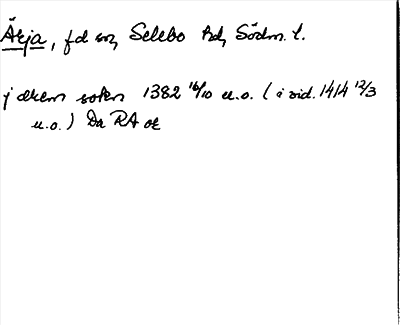 Ärja, fd sn, Selebo hd, Södm. l.
j ækem sokn 1382 16/10 u.o. (i vid. 1414 12/3
u.o.) Da RA or